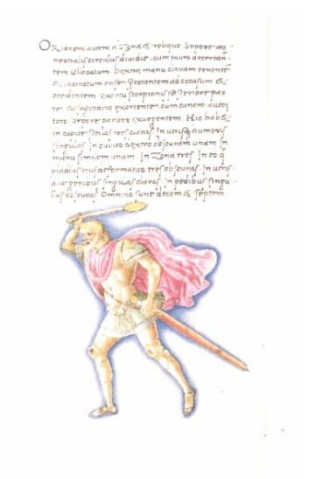 Orionem autem a Zona & reliquo corpore aeq
noctialis circulus diuidit. cum tauro decertan
tem collocatum. dextra manu clauam tenente
& incinctum ense. spectantem ad occasum &
occidentem exorta scorpionis posteriore par
te & sagitario exorientem. cum cancro autem
toto corpore pariter exurgentem. Hic habet
in capite stellas tres claras. In utrisque humeris
singulas. In cubito dextro obscuram unam. In
manu similem unam. In Zona tres. In eo q
gladius eius deformatur tres obscuras. In utris
que genibus singulas claras. In pedibus singu
las obscuras. Omnino sunt decem & septem